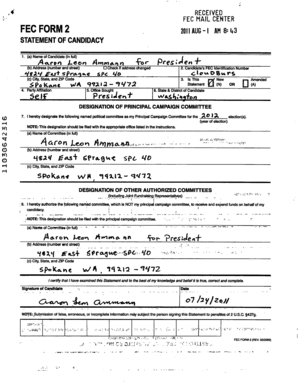 RECEIVED
FEC MAIL CENTER
FEC FORM 2
2011 AUG -1 AM 8:43
STATEMENT OF CANDIDACY
1. (a) Name of Candidate (in full)
Aaron Leon Ammann for President
(b) Address (number and street) Check if address changed
2. Candidate's FEC Identification Number
4824 East Sprague SPC 40
(c) City, State, and ZIP Code
3. Is This Statement New (N) OR Amended (A)
Spokane WA 99212-9472
4. Party Affiliation
5. Office Sought
6. State & District of Candidate
Self
President
Washington
DESIGNATION OF PRINCIPAL CAMPAIGN COMMITTEE
7. I hereby designate the following named political committee as my Principal Campaign Committee for the 2012 election(s).
(year of election)
NOTE: This designation should be filed with the appropriate office listed in the instructions.
(a) Name of Committee (in full)
Aaron Leon Ammann
(b) Address (number and street)
4824 East Sprague SPC 40
(c) City, State, and ZIP Code
Spokane WA, 99212-9472
DESIGNATION OF OTHER AUTHORIZED COMMITTEES
(Including Joint Fundraising Representatives)
8. I hereby authorize the following named committee, which is NOT my principal campaign committee, to receive and expend funds on behalf of my candidacy.
NOTE: This designation should be filed with the principal campaign committee.
(a) Name of Committee (in full)
Aaron Leon Ammann for President
(b) Address (number and street)
4824 East Sprague SPC 40
(c) City, State, and ZIP Code
Spokane WA, 99212-9472
I certify that I have examined this Statement and to the best of my knowledge and belief it is true, correct and complete.
Signature of Candidate
Date
Aaron Leon Ammann
07/24/2011
NOTE: Submission of false, erroneous, or incomplete information may subject the person signing this Statement to penalties of 2 U.S.C. §437g.
FEC FORM 2
11030642316